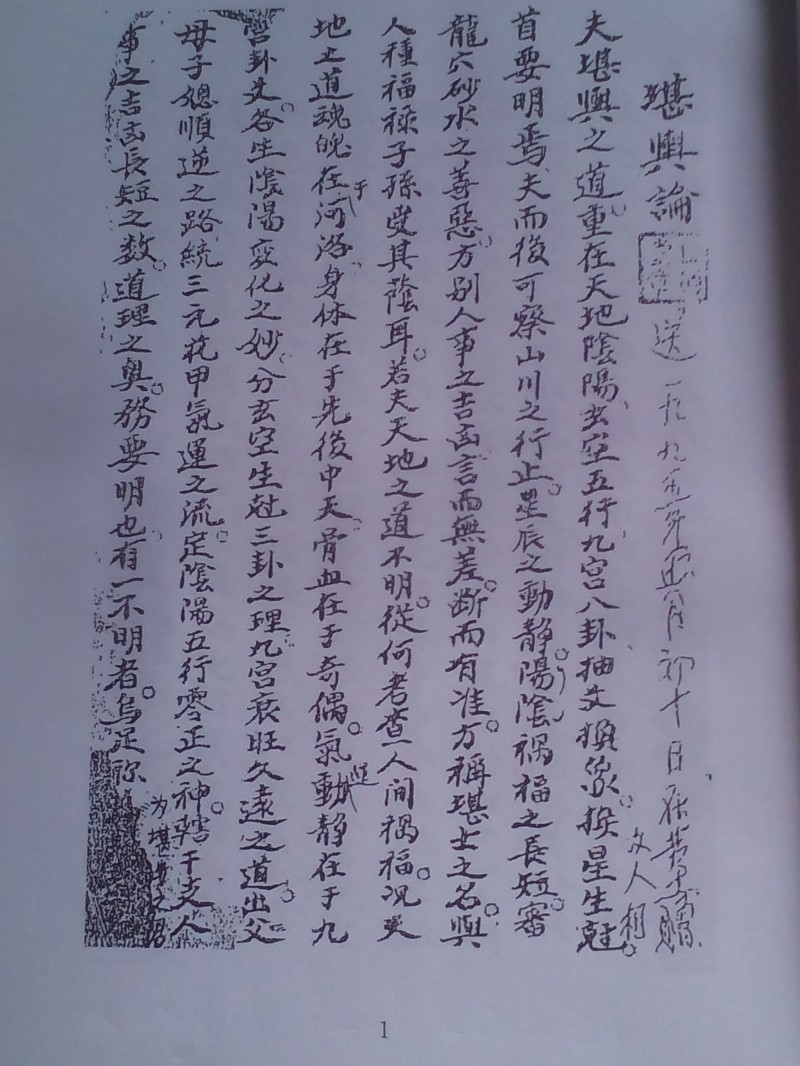 堪輿論
送一九九 年 月初十日 友人相贈
夫堪輿之道重在天地陰陽玄空五行九宮八卦抽爻換象。挨星生尅
首要明焉夫而後可察山川之行止。星辰之動靜。陽陰禍福之長短。審
龍穴砂水之善惡。方別人事之吉凶言而無差。斷而有准。方稱堪士之名與
人種福祿子孫受其蔭耳。若夫天地之道不明。從何考查人間禍福。況天
地之道魂魄在于河洛。身体在于先後中天。骨血在于奇偶。氣動靜在于九
宮卦爻各生陰陽变化之妙。分玄空生尅三卦之理。九宮衰旺久遠之道。出父
母子總順逆之路統三元花甲氣運之流。定陰陽五行零正之神。轄干支人
事之吉凶長短之数。道理之奧。務要明也。有一不明者。烏足称為堪士之
1